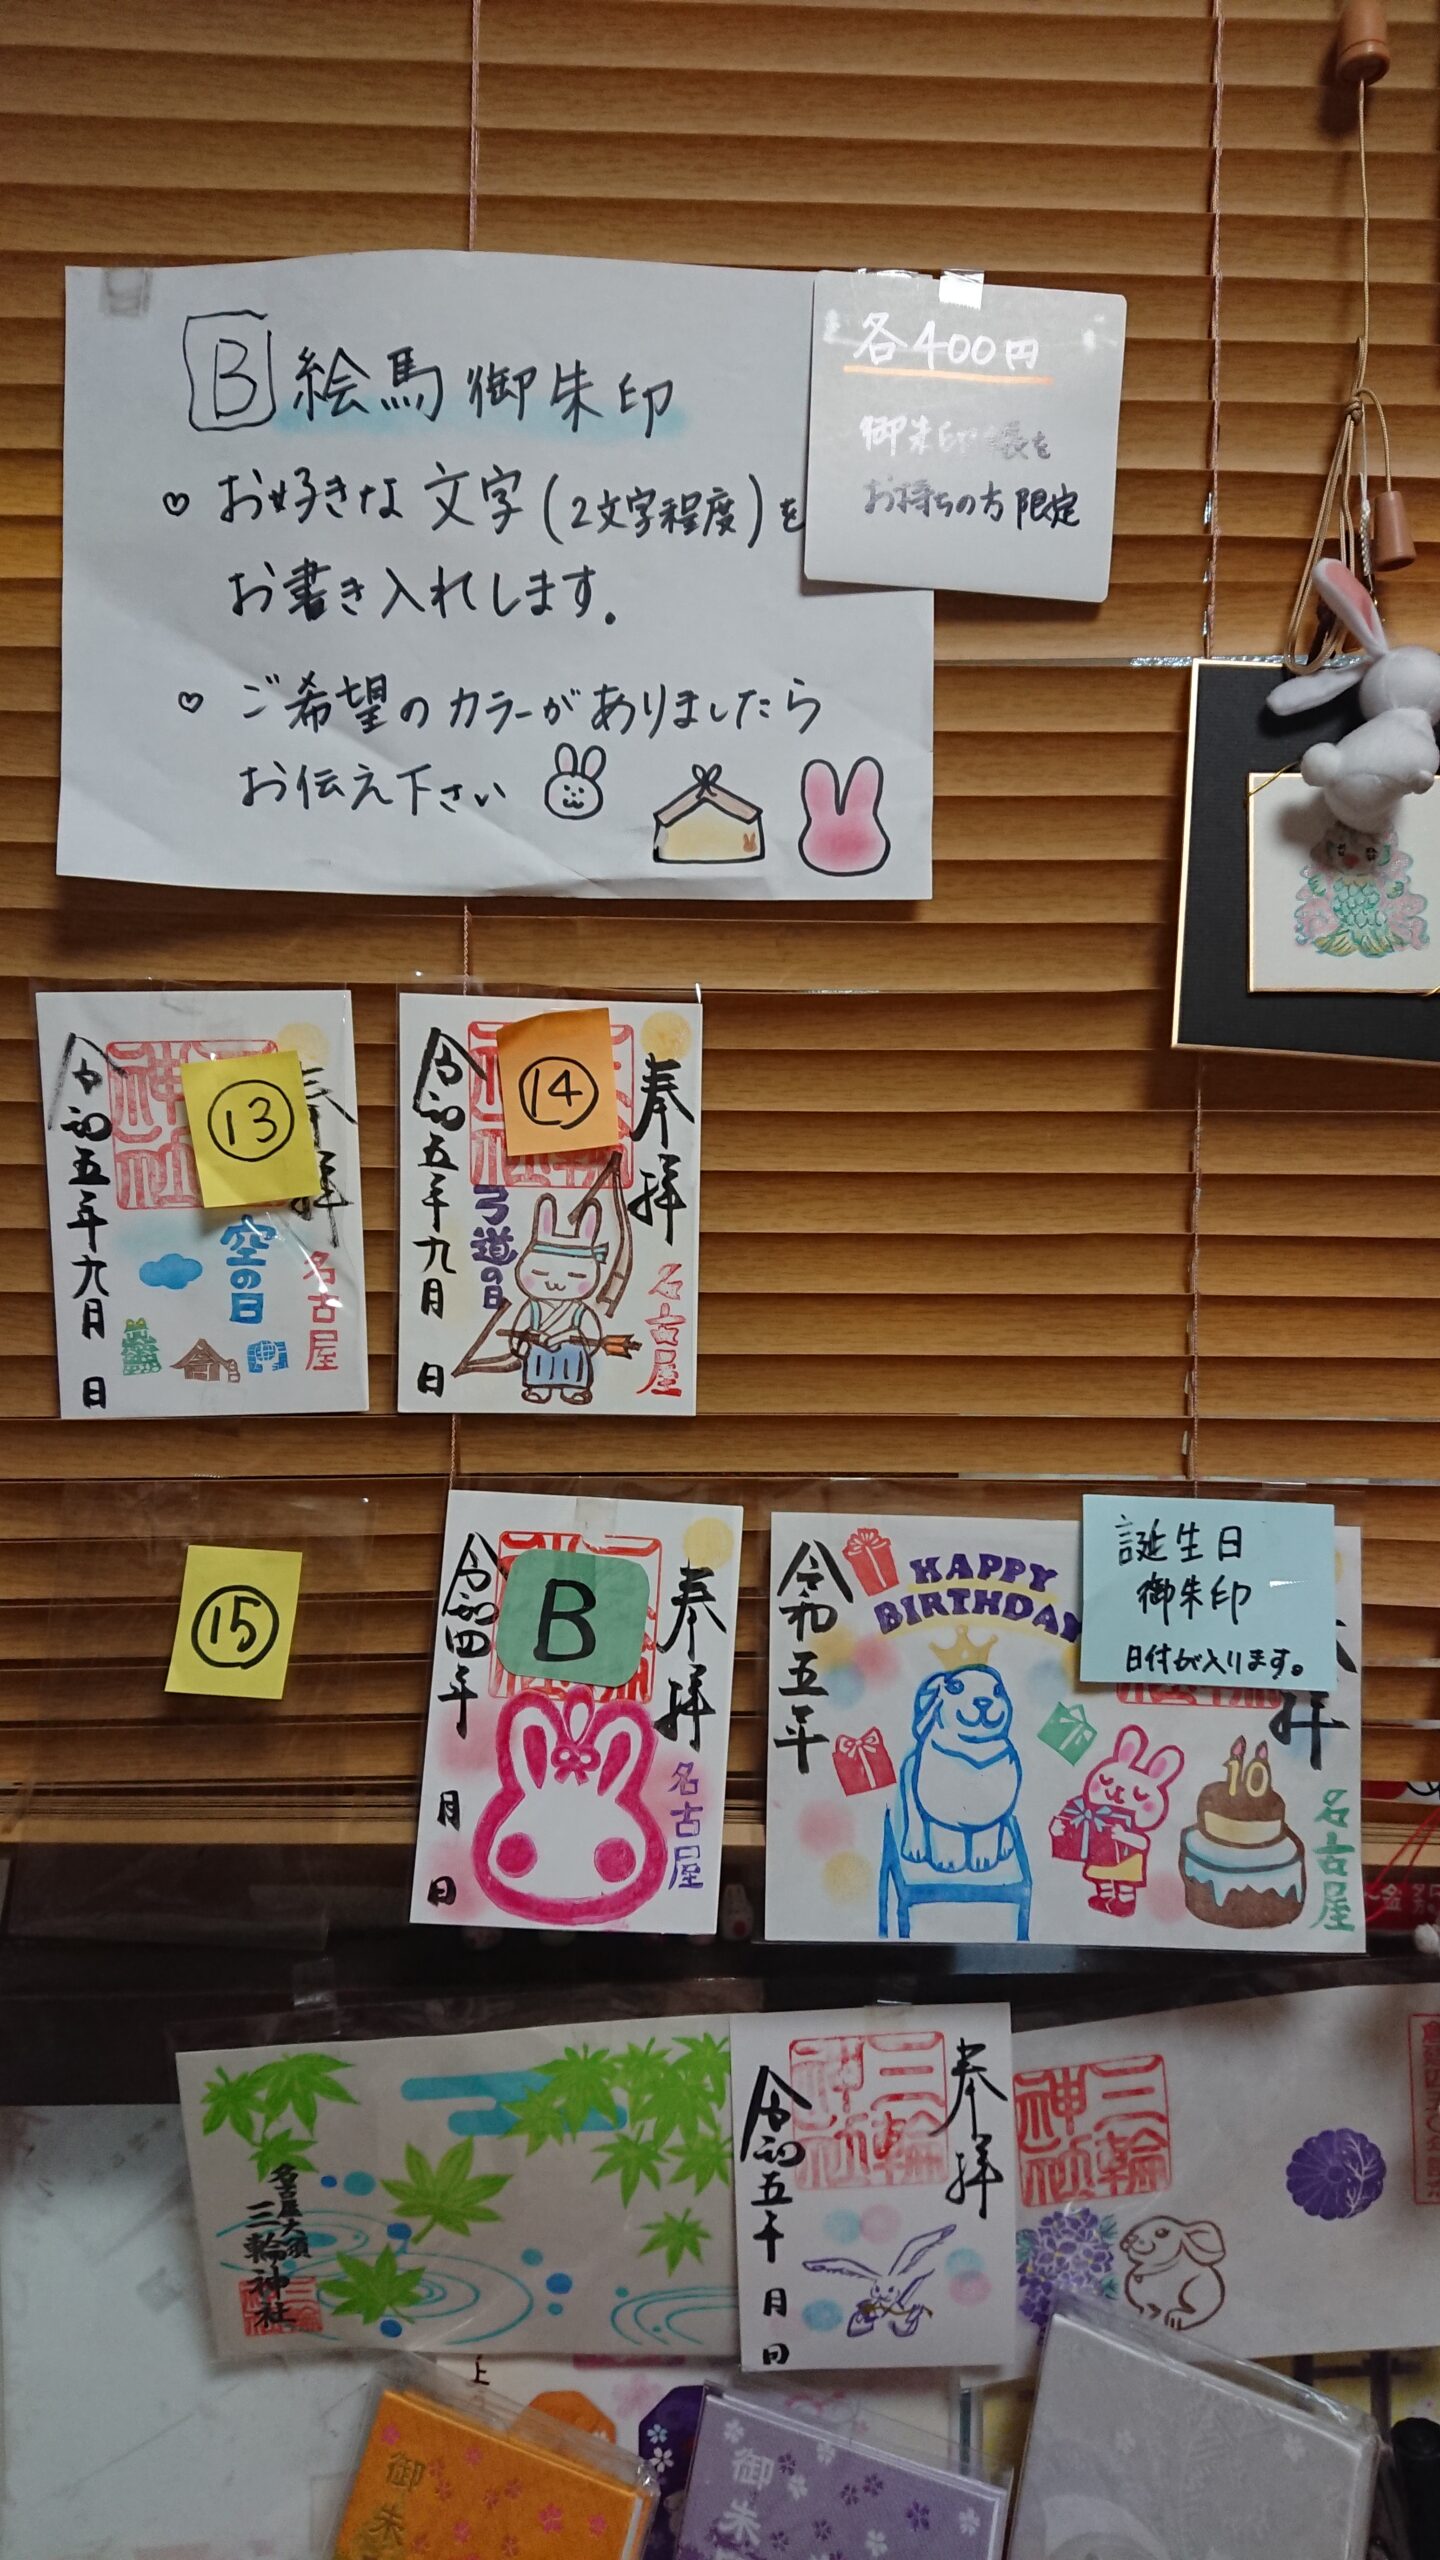 B 絵馬御朱印
♡ お好きな文字(2文字程度)を
お書き入れします。
♡ ご希望のカラーがありましたら
お伝え下さい
各400円
御朱印帳を
お持ちの方限定
⑬
奉拝
神社
空の日
名古屋
令和五年九月 日
⑭
奉拝
弓道の日
名古屋
令和五年九月 日
⑮
B
奉拝
名古屋
令和四年 月 日
誕生日
御朱印
日付が入ります。
HAPPY
BIRTHDAY
拝
10
名古屋
令和五年
名古屋大須
三輪神社
奉拝
三輪
神社
令和五年 月 日
三輪
神社
御朱
御朱